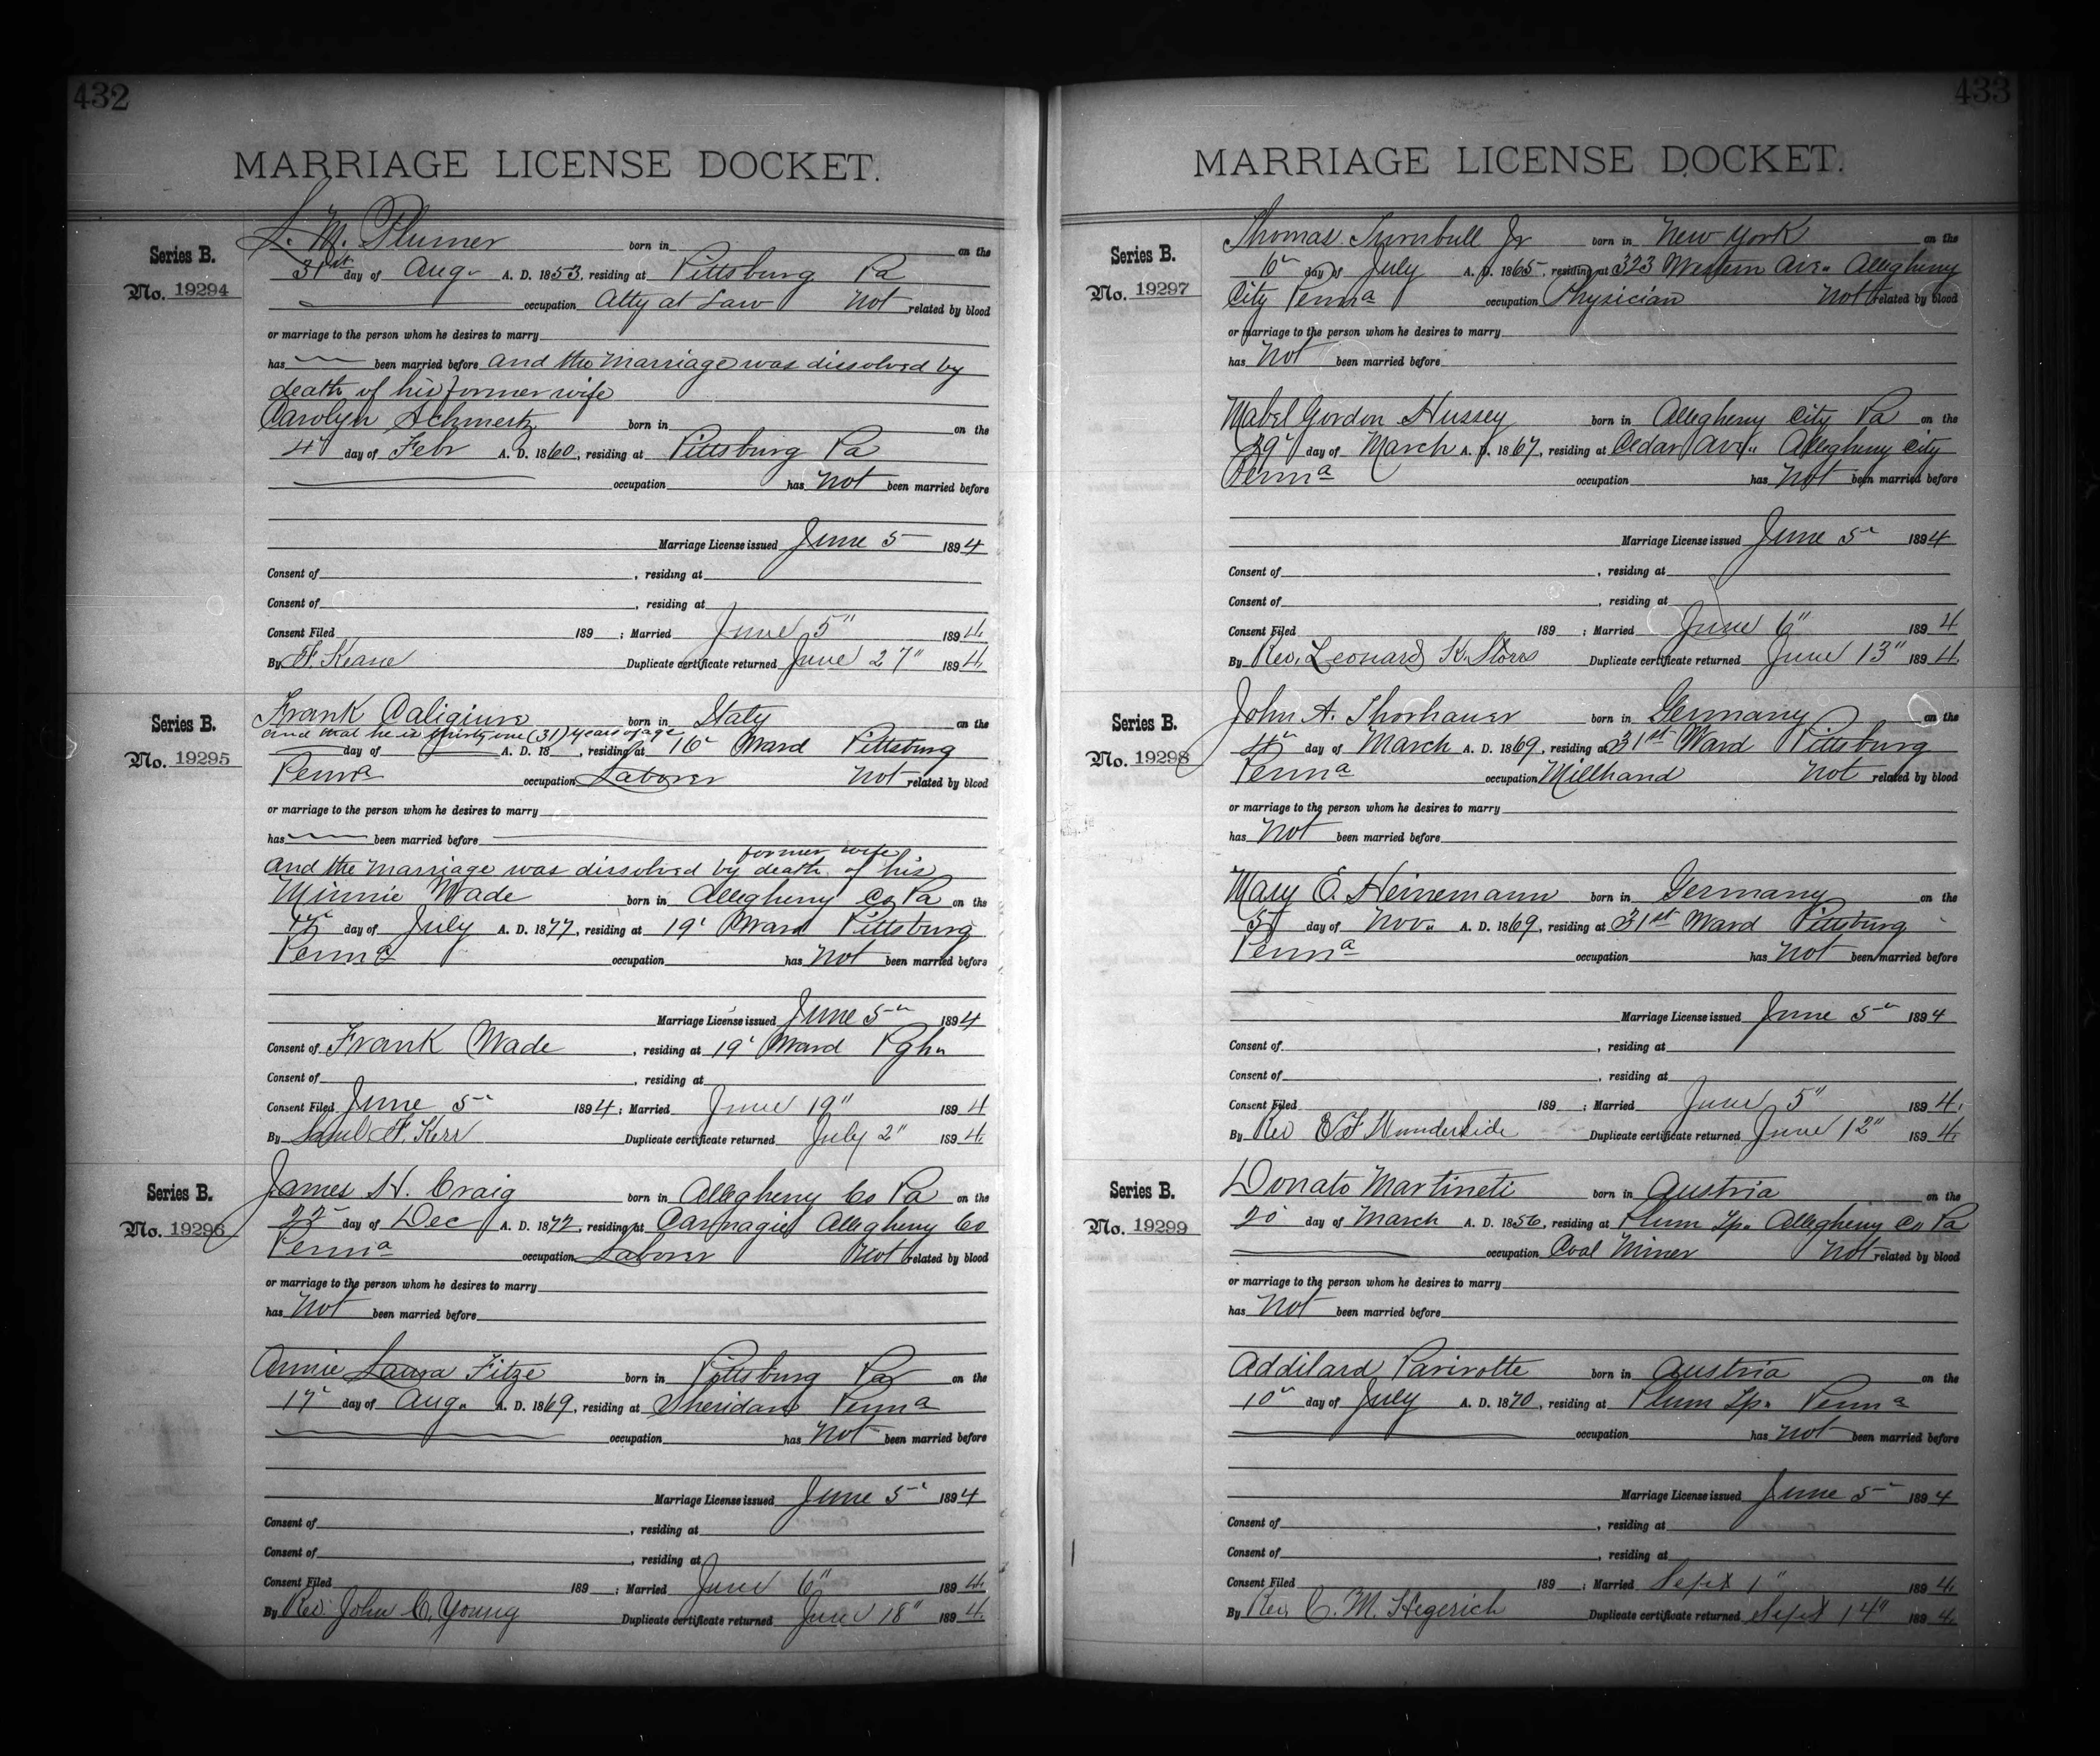 432
MARRIAGE LICENSE DOCKET.
Series B.
No. 19294
L. M. Plumer born in on the
31st day of Aug. A. D. 1853, residing at Pittsburg Pa
occupation Atty at Law Not related by blood
or marriage to the person whom he desires to marry
has been married before and the marriage was dissolved by
death of his former wife
Carolyn Schmertz born in on the
4" day of Febr A. D. 1860, residing at Pittsburg Pa
occupation has Not been married before
Marriage License issued June 5 1894
Consent of , residing at
Consent of , residing at
Consent Filed 189 ; Married June 5" 1894
By F. Keane Duplicate certificate returned June 27" 1894
Series B.
No. 19295
Frank Caligiure born in Italy on the
and that he is thirty one (31) years of age
day of A. D. 18 , residing at 16" Ward Pittsburg
Penna occupation Laborer Not related by blood
or marriage to the person whom he desires to marry
has been married before
and the marriage was dissolved by death of his former wife
Minnie Wade born in Allegheny Co Pa on the
day of July A. D. 1877, residing at 19" Ward Pittsburg
Penna occupation has Not been married before
Marriage License issued June 5" 1894
Consent of Frank Wade , residing at 19" Ward Pgh"
Consent of , residing at
Consent Filed June 5" 1894 ; Married June 19" 1894
By Saml F. Kerr Duplicate certificate returned July 2" 1894
Series B.
No. 19296
James H. Craig born in Allegheny Co Pa on the
22" day of Dec A. D. 1872, residing at Carnagie Allegheny Co
Penna occupation Laborer Not related by blood
or marriage to the person whom he desires to marry
has Not been married before
Annie Laura Fitze born in Pittsburg Pa on the
17" day of Aug. A. D. 1869, residing at Sheridan Penna
occupation has Not been married before
Marriage License issued June 5" 1894
Consent of , residing at
Consent of , residing at
Consent Filed 189 ; Married June 6" 1894
By Rev. John C. Young Duplicate certificate returned June 18" 1894
433
MARRIAGE LICENSE DOCKET.
Series B.
No. 19297
Thomas Turnbull Jr born in New York on the
6" day of July A. D. 1865, residing at 323 Western Ave. Allegheny
City Penna occupation Physician Not related by blood
or marriage to the person whom he desires to marry
has Not been married before
Mabel Gordon Hussey born in Allegheny City Pa on the
29" day of March A. D. 1867, residing at Cedar Ave. Allegheny City
Penna occupation has Not been married before
Marriage License issued June 5" 1894
Consent of , residing at
Consent of , residing at
Consent Filed 189 ; Married June 6" 1894
By Rev. Leonard K. Storrs Duplicate certificate returned June 13" 1894
Series B.
No. 19298
John A. Thorhauer born in Germany on the
4" day of March A. D. 1869, residing at 31st Ward Pittsburg
Penna occupation Millhand Not related by blood
or marriage to the person whom he desires to marry
has Not been married before
Mary E. Heinemann born in Germany on the
5" day of Nov. A. D. 1869, residing at 31st Ward Pittsburg
Penna occupation has Not been married before
Marriage License issued June 5" 1894
Consent of , residing at
Consent of , residing at
Consent Filed 189 ; Married June 5" 1894
By Rev Duplicate certificate returned June 12" 1894
Series B.
No. 19299
Donato Martineti born in Austria on the
20" day of March A. D. 1856, residing at Plum Tp. Allegheny Co Pa
occupation Coal Miner Not related by blood
or marriage to the person whom he desires to marry
has Not been married before
Addilard Parivotte born in Austria on the
10" day of July A. D. 1870, residing at Plum Tp. Penna
occupation has Not been married before
Marriage License issued June 5" 1894
Consent of , residing at
Consent of , residing at
Consent Filed 189 ; Married Sept 1" 1894
By Rev. C. M. Hegerich Duplicate certificate returned Sept 14" 1894